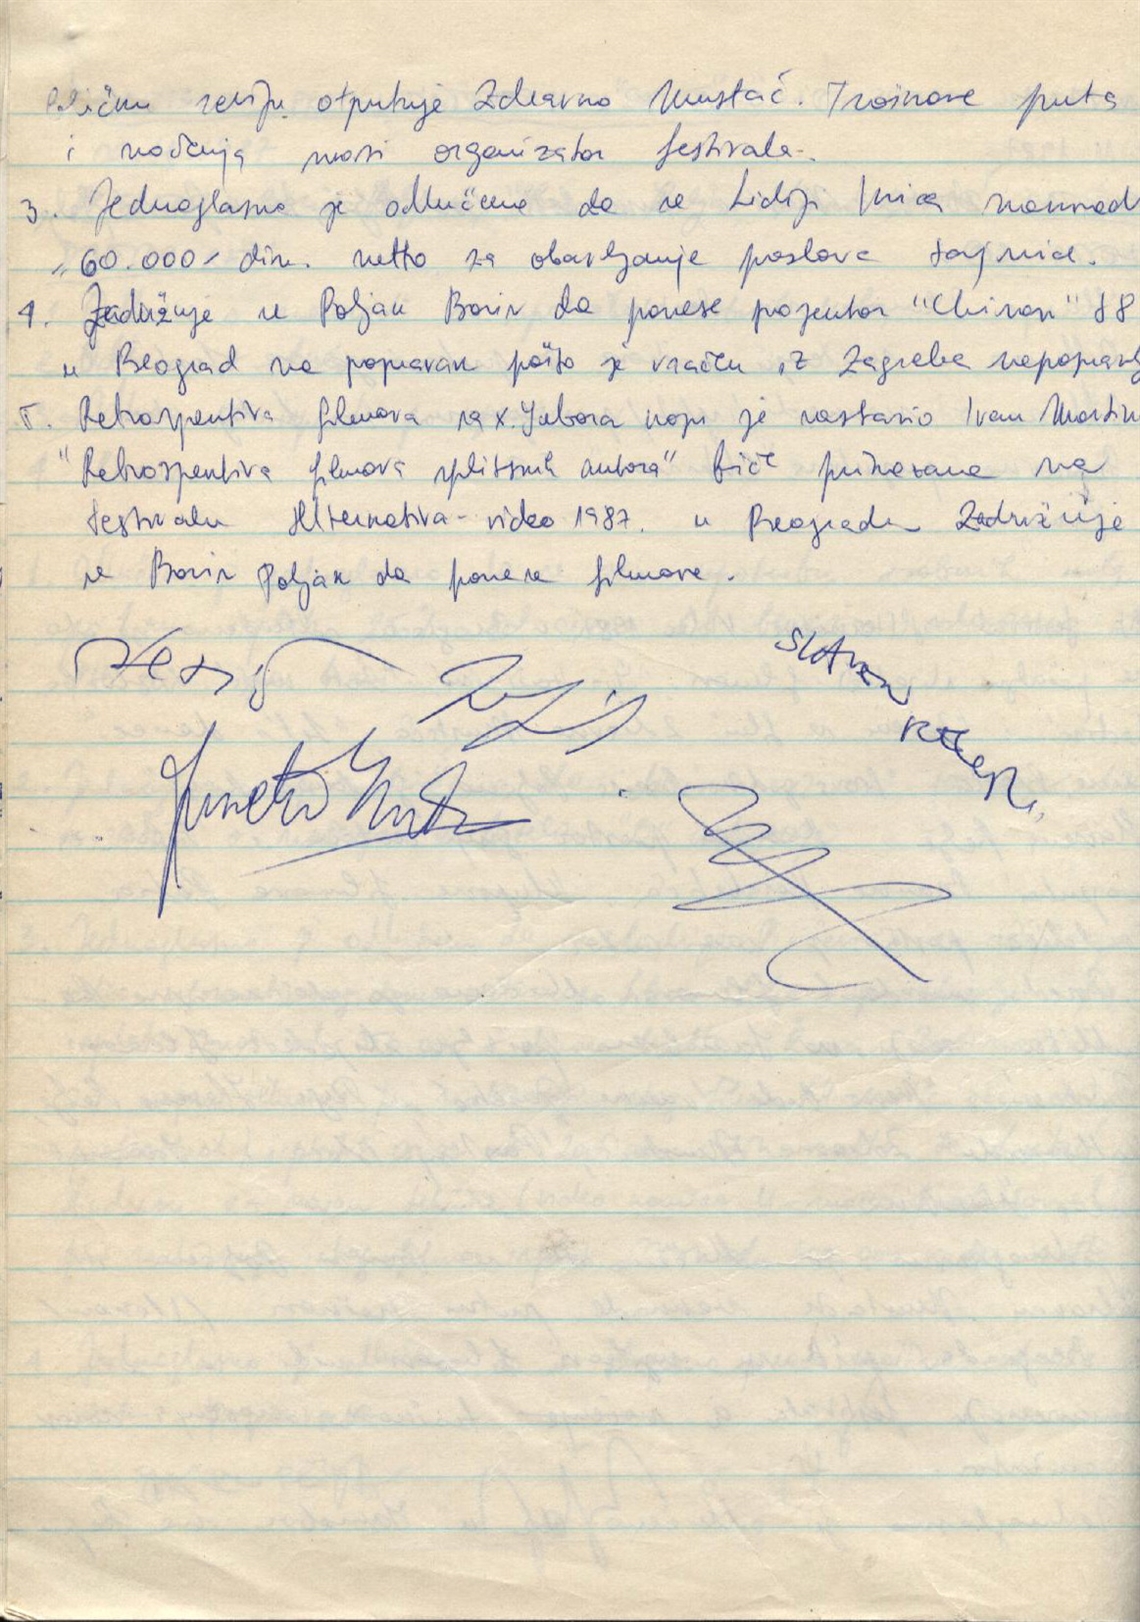 reviju otputuje Zdravko Mustać. Troškove puta
i noćenja snosi organizator festivala.
3. Jednoglasno je odlučeno da se Lidiji naknad
60.000 din. netto za obavljanje poslova tajnice.
4. Zadužuje se Poljak Boris da ponese projektor "Chinon"
u Beograd na popravak pošto je vraćen iz Zagreba nepopravlj
5. Retrospektiva filmova sa X. Sabora koju je sastavio Ivan Martin
"Retrospektiva filmova splitskih autora" biće prikazana na
festivalu Alternativa-video 1987. u Beogradu Zadužuje
se Boris Poljak da ponese filmove.